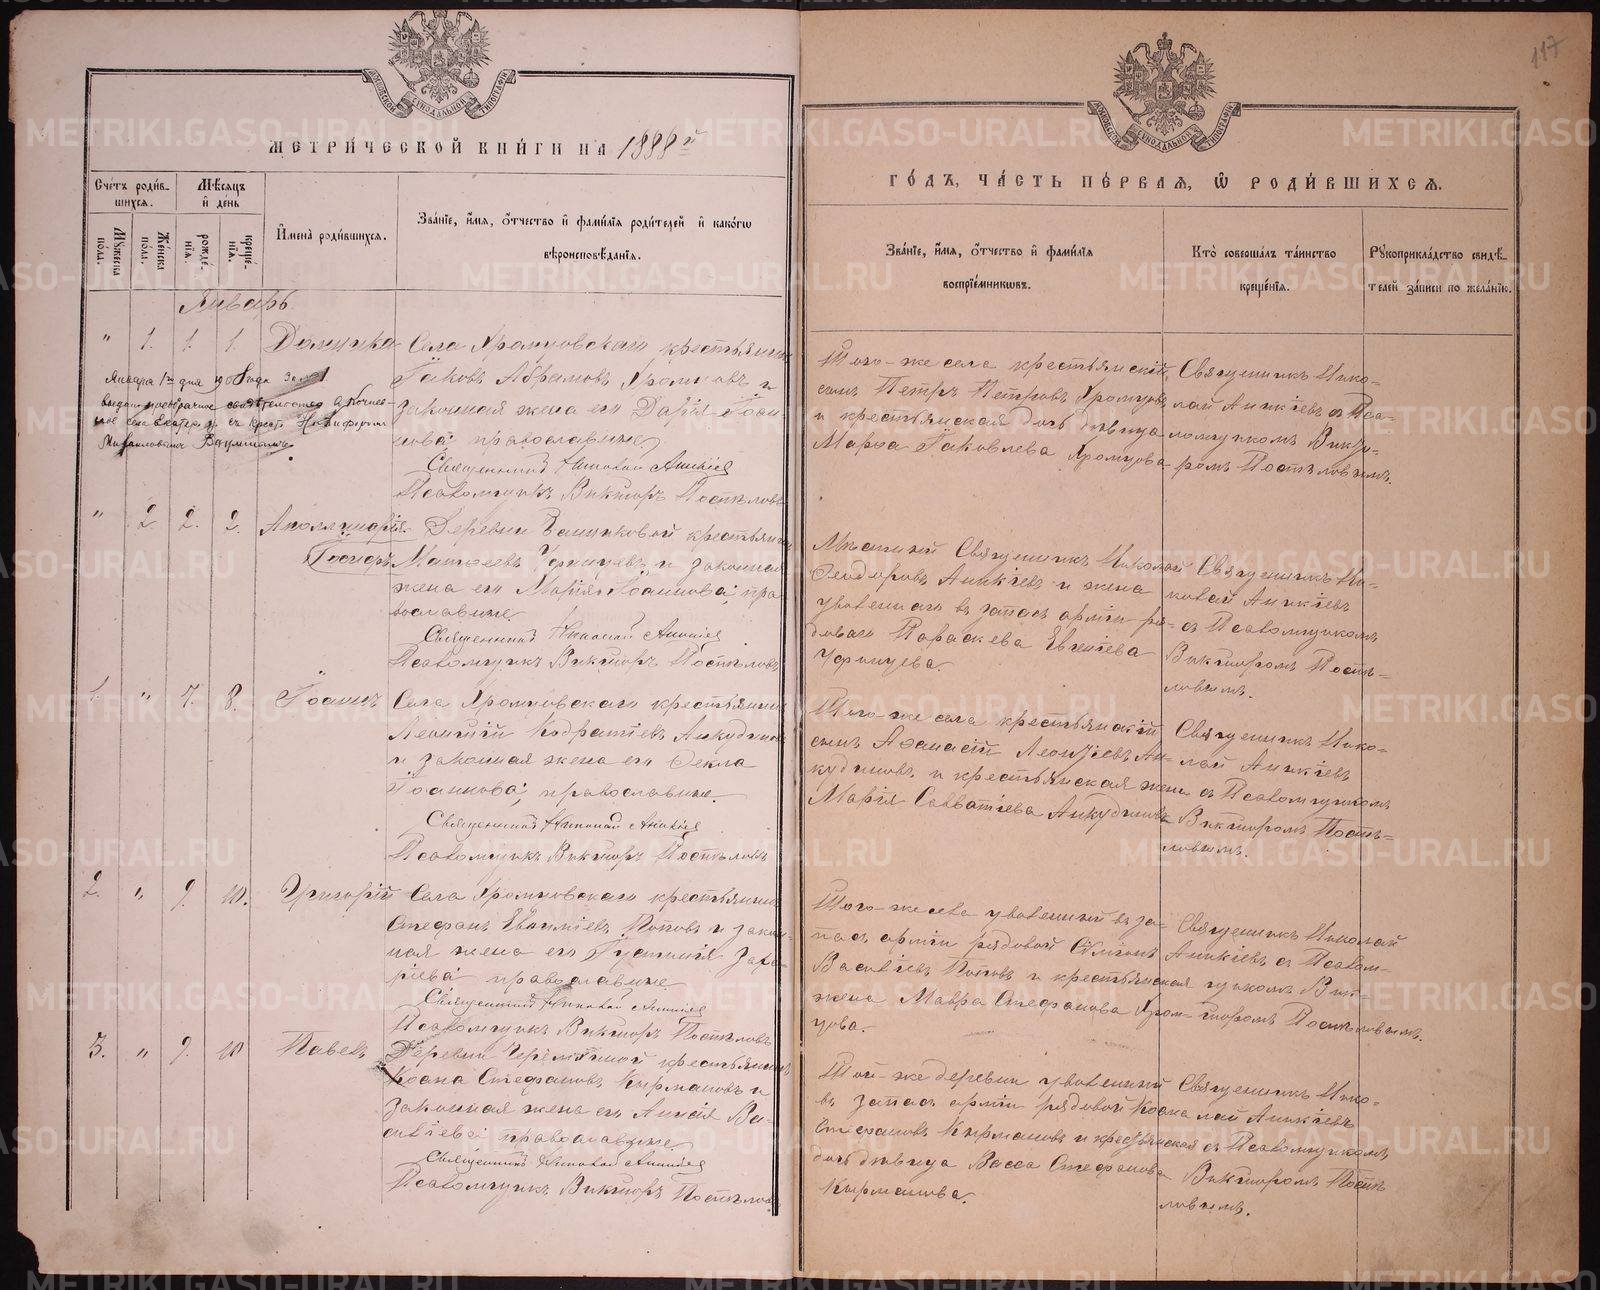 МЕТРИ́ЧЕСКОЙ КНИ́ГИ НА 1888й
Сче́тъ роди́в-
шихся.
Мѣ́сяцъ
и де́нь
Му́жеска
пола.
Же́нска
пола.
рожде́-
нїя.
креще́-
нїя.
Имена̀ роди́вшихся.
Зва́нїе, и́мя, о́тчество и фами́лїя роди́телей и како́гѡ
вѣроисповѣ́данїя.
Январь
" 1. 1. 1. Домника Села Хромцовскаго крестьянинъ
Іаковъ Абрамовъ Хромцовъ и
законная жена его Дарія Іоан-
нова; православные
Января 1го дня 1908 года
Михаиловичемъ
Священникъ Николай Аникіевъ
Псаломщикъ Викторъ Поспѣловъ
" 2. 2. 2. Аполлинарія Деревни крестьянинъ
Матѳеевъ и законная
жена его Марія Іоаннова; пра-
вославные.
Священникъ Николай Аникіевъ
Псаломщикъ Викторъ Поспѣловъ
1. " 7. 8. Іоаннъ Села Хромцовскаго крестьянинъ
Леонтій Кодратіевъ Анкудиновъ
и законная жена его Ѳекла
Іоаннова; православные.
Священникъ Николай Аникіевъ
Псаломщикъ Викторъ Поспѣловъ
2. " 9. 10. Григорій Села Хромцовскаго крестьянинъ
Стефанъ Евѳиміевъ Поповъ и закон-
ная жена его Іустинія Заха-
ріева православные
Священникъ Николай Аникіевъ
Псаломщикъ Викторъ Поспѣловъ
3. " 9. 10 Павелъ Деревни крестьянинъ
Косма Стефановъ Кырмановъ и
законная жена его Анисія Ва-
силіева; православные
Священникъ Николай Аникіевъ
Псаломщикъ Викторъ Поспѣловъ
117
ГО́ДЪ, ЧА́СТЬ ПЕ́РВАЯ, Ѡ РОДИ́ВШИХСЯ.
Зва́нїе, и́мя, о́тчество и фами́лїя
воспрїе́мниковъ.
Кто̀ соверша́лъ та́инство
креще́нїя.
Рукоприкла́дство свидѣ́-
телей за́писи по жела́нїю.
Того-же села крестьянскій
сынъ Петръ Петровъ Хромцовъ
и крестьянская дочь дѣвица
Марѳа Іаковлева Хромцова
Священникъ Нико-
лай Аникіевъ съ Пса-
ломщикомъ Викто-
ромъ Поспѣловымъ.
Мѣстный Священникъ Николай
Ѳеодоровъ Аникіевъ и жена
уволеннаго въ запасъ арміи ря-
доваго Параскева Евгеніева
Уфинцева.
Священникъ Ни-
колай Аникіевъ
съ Псаломщикомъ
Викторомъ Поспѣ-
ловымъ.
Того-же села крестьянскій
сынъ Аѳанасій Леонтіевъ Ан-
кудиновъ и крестьянская жена
Марія Савватіева Анкудинова
Священникъ Нико-
лай Аникіевъ
съ Псаломщикомъ
Викторомъ Поспѣ-
ловымъ.
Того-же села уволенный въ за-
пасъ арміи рядовой Симеонъ
Василіевъ Поповъ и крестьянская
жена Мавра Стефанова Хром-
цова.
Священникъ Николай
Аникіевъ съ Псалом-
щикомъ Вик-
торомъ Поспѣловымъ.
Той-же деревни уволенный
въ запасъ арміи рядовой Косма
Стефановъ Кырмановъ и крестьянская
дочь дѣвица Васса Стефанова
Кырманова.
Священникъ Нико-
лай Аникіевъ
съ Псаломщикомъ
Викторомъ Поспѣ-
ловымъ.
METRIKI.GASO-URAL.RU